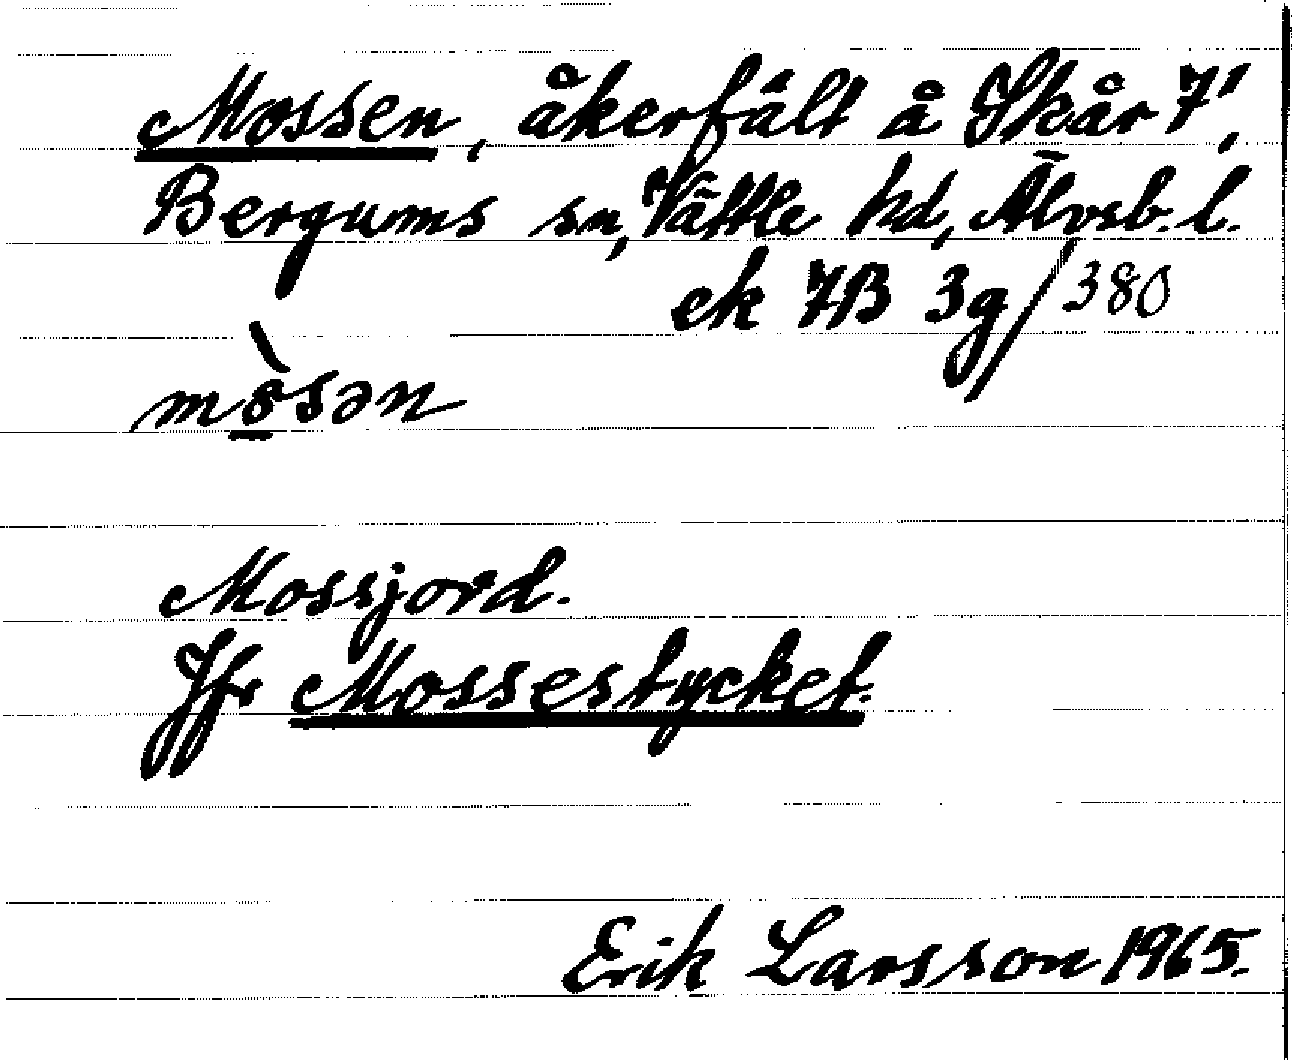 Mossen, åkerfält å Skår 7¹,
Bergums sn, Vättle hd, Älvsb. l.
ek 7B 3g/380
mòsən
Mossjord.
Jfr Mossestycket.
Erik Larsson 1965.